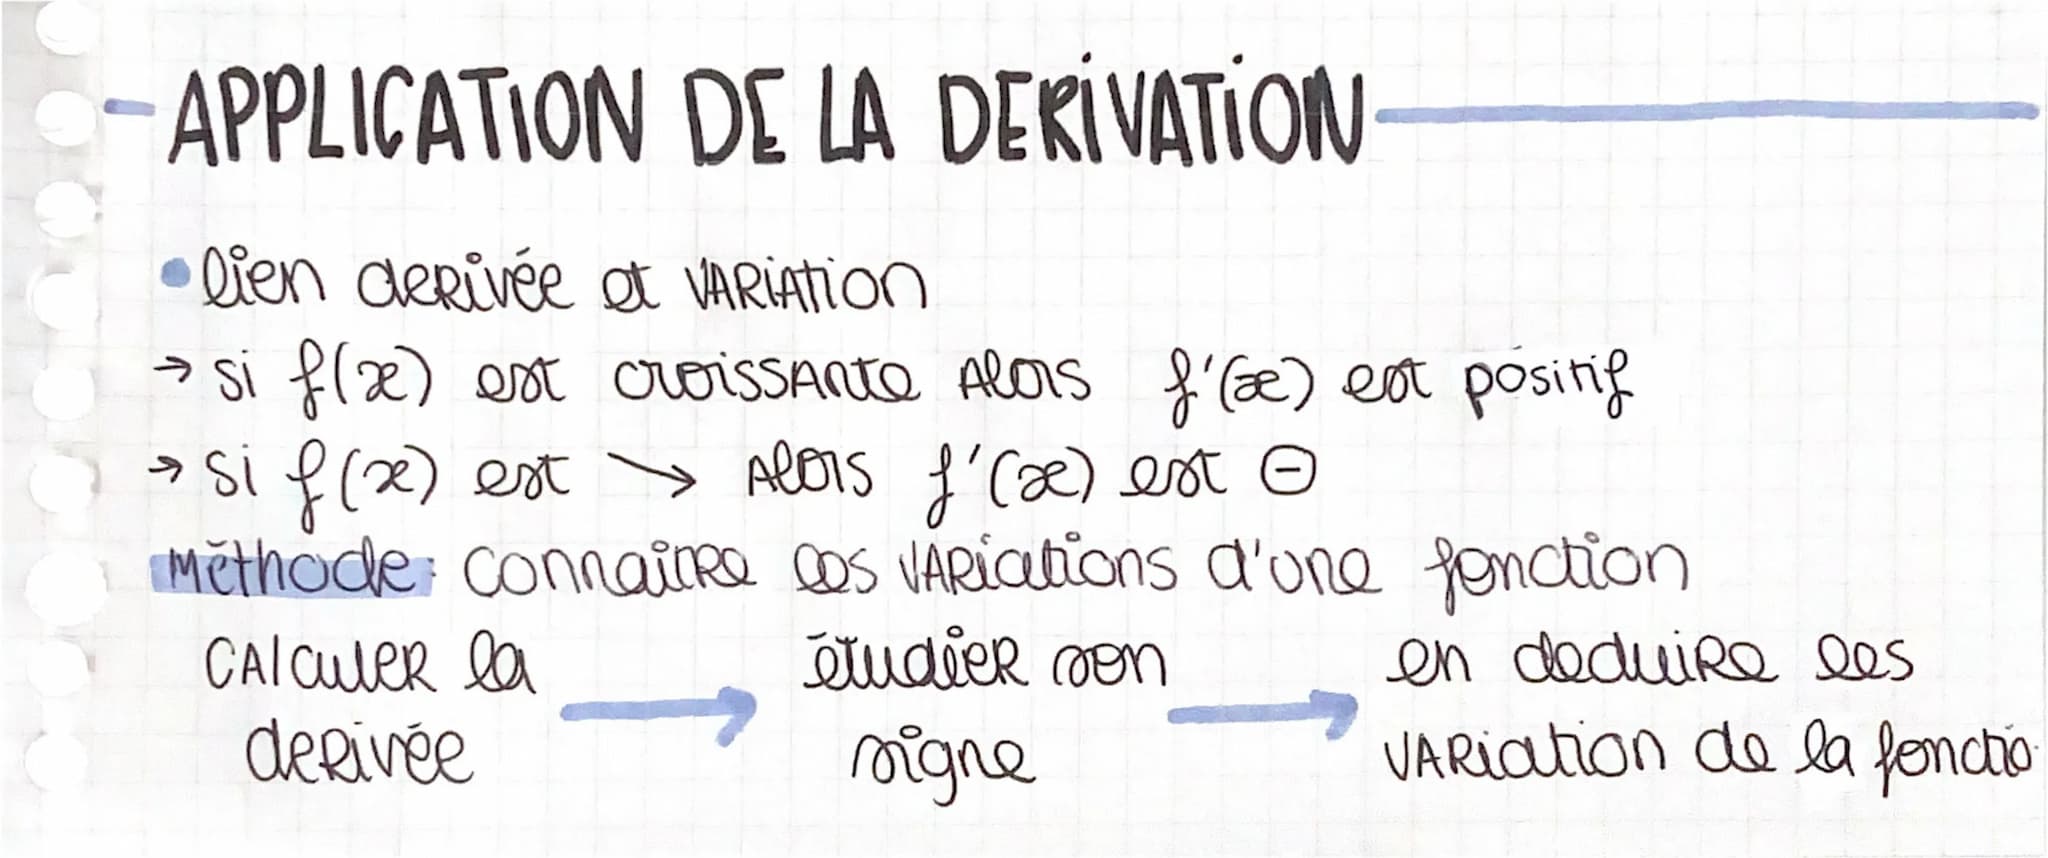 APPLICATION DE LA DERIVATION
• lien derivée et variation
→ si f(x) est croissante alors f'(x) est positif
→ si f(x) est ↘ alors f'(x) est ⊖
Méthode: connaitre les variations d'une fonction
calculer la → étudier son → en deduire les
derivée signe variation de la fonctio